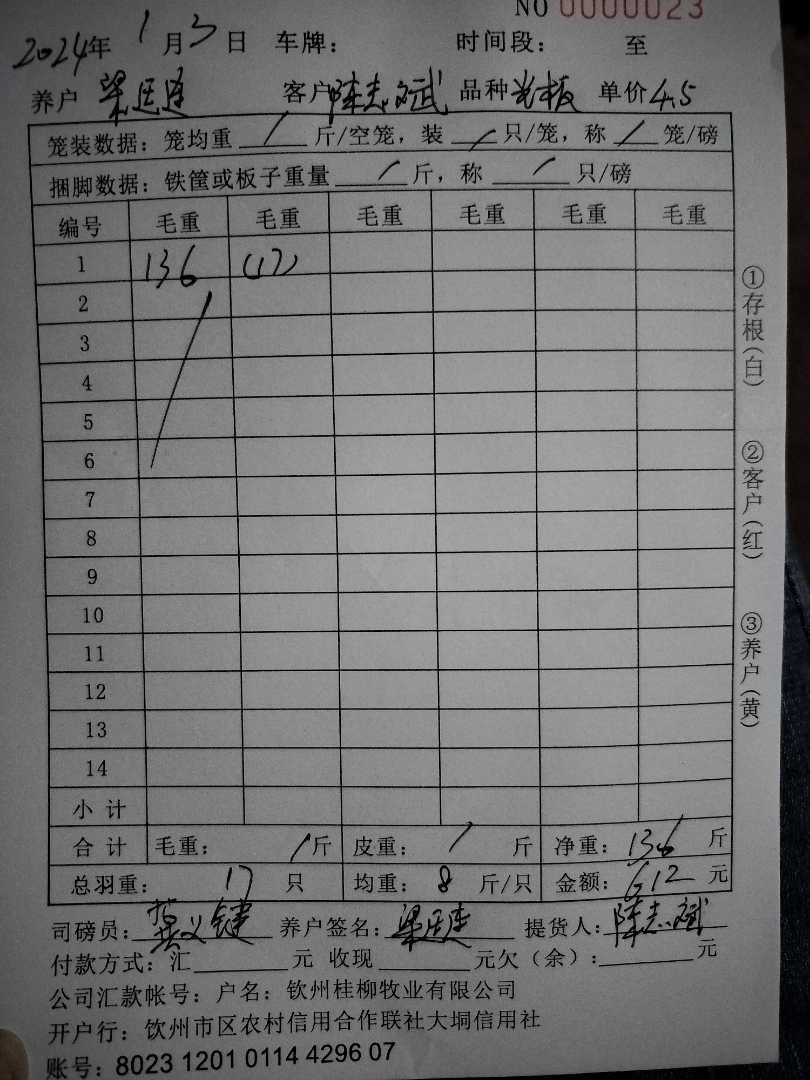 NO 0000023
2024年 1月3日 车牌: 时间段: 至
养户 梁廷连 客户 陈志斌 品种 光板 单价 4.5
笼装数据: 笼均重 / 斤/空笼, 装 / 只/笼, 称 / 笼/磅
捆脚数据: 铁筐或板子重量 / 斤, 称 / 只/磅
编号 毛重 毛重 毛重 毛重 毛重 毛重
1 136 (17)
2
3
4
5
6
7
8
9
10
11
12
13
14
小 计
合 计 毛重: / 斤 皮重: / 斤 净重: 136 斤
总羽重: 17 只 均重: 8 斤/只 金额: 612 元
司磅员: 龚义键 养户签名: 梁廷连 提货人: 陈志斌
付款方式: 汇 元 收现 元欠(余): 元
公司汇款帐号: 户名: 钦州桂柳牧业有限公司
开户行: 钦州市区农村信用合作联社大垌信用社
账号: 8023 1201 0114 4296 07
①存根(白)
②客户(红)
③养户(黄)